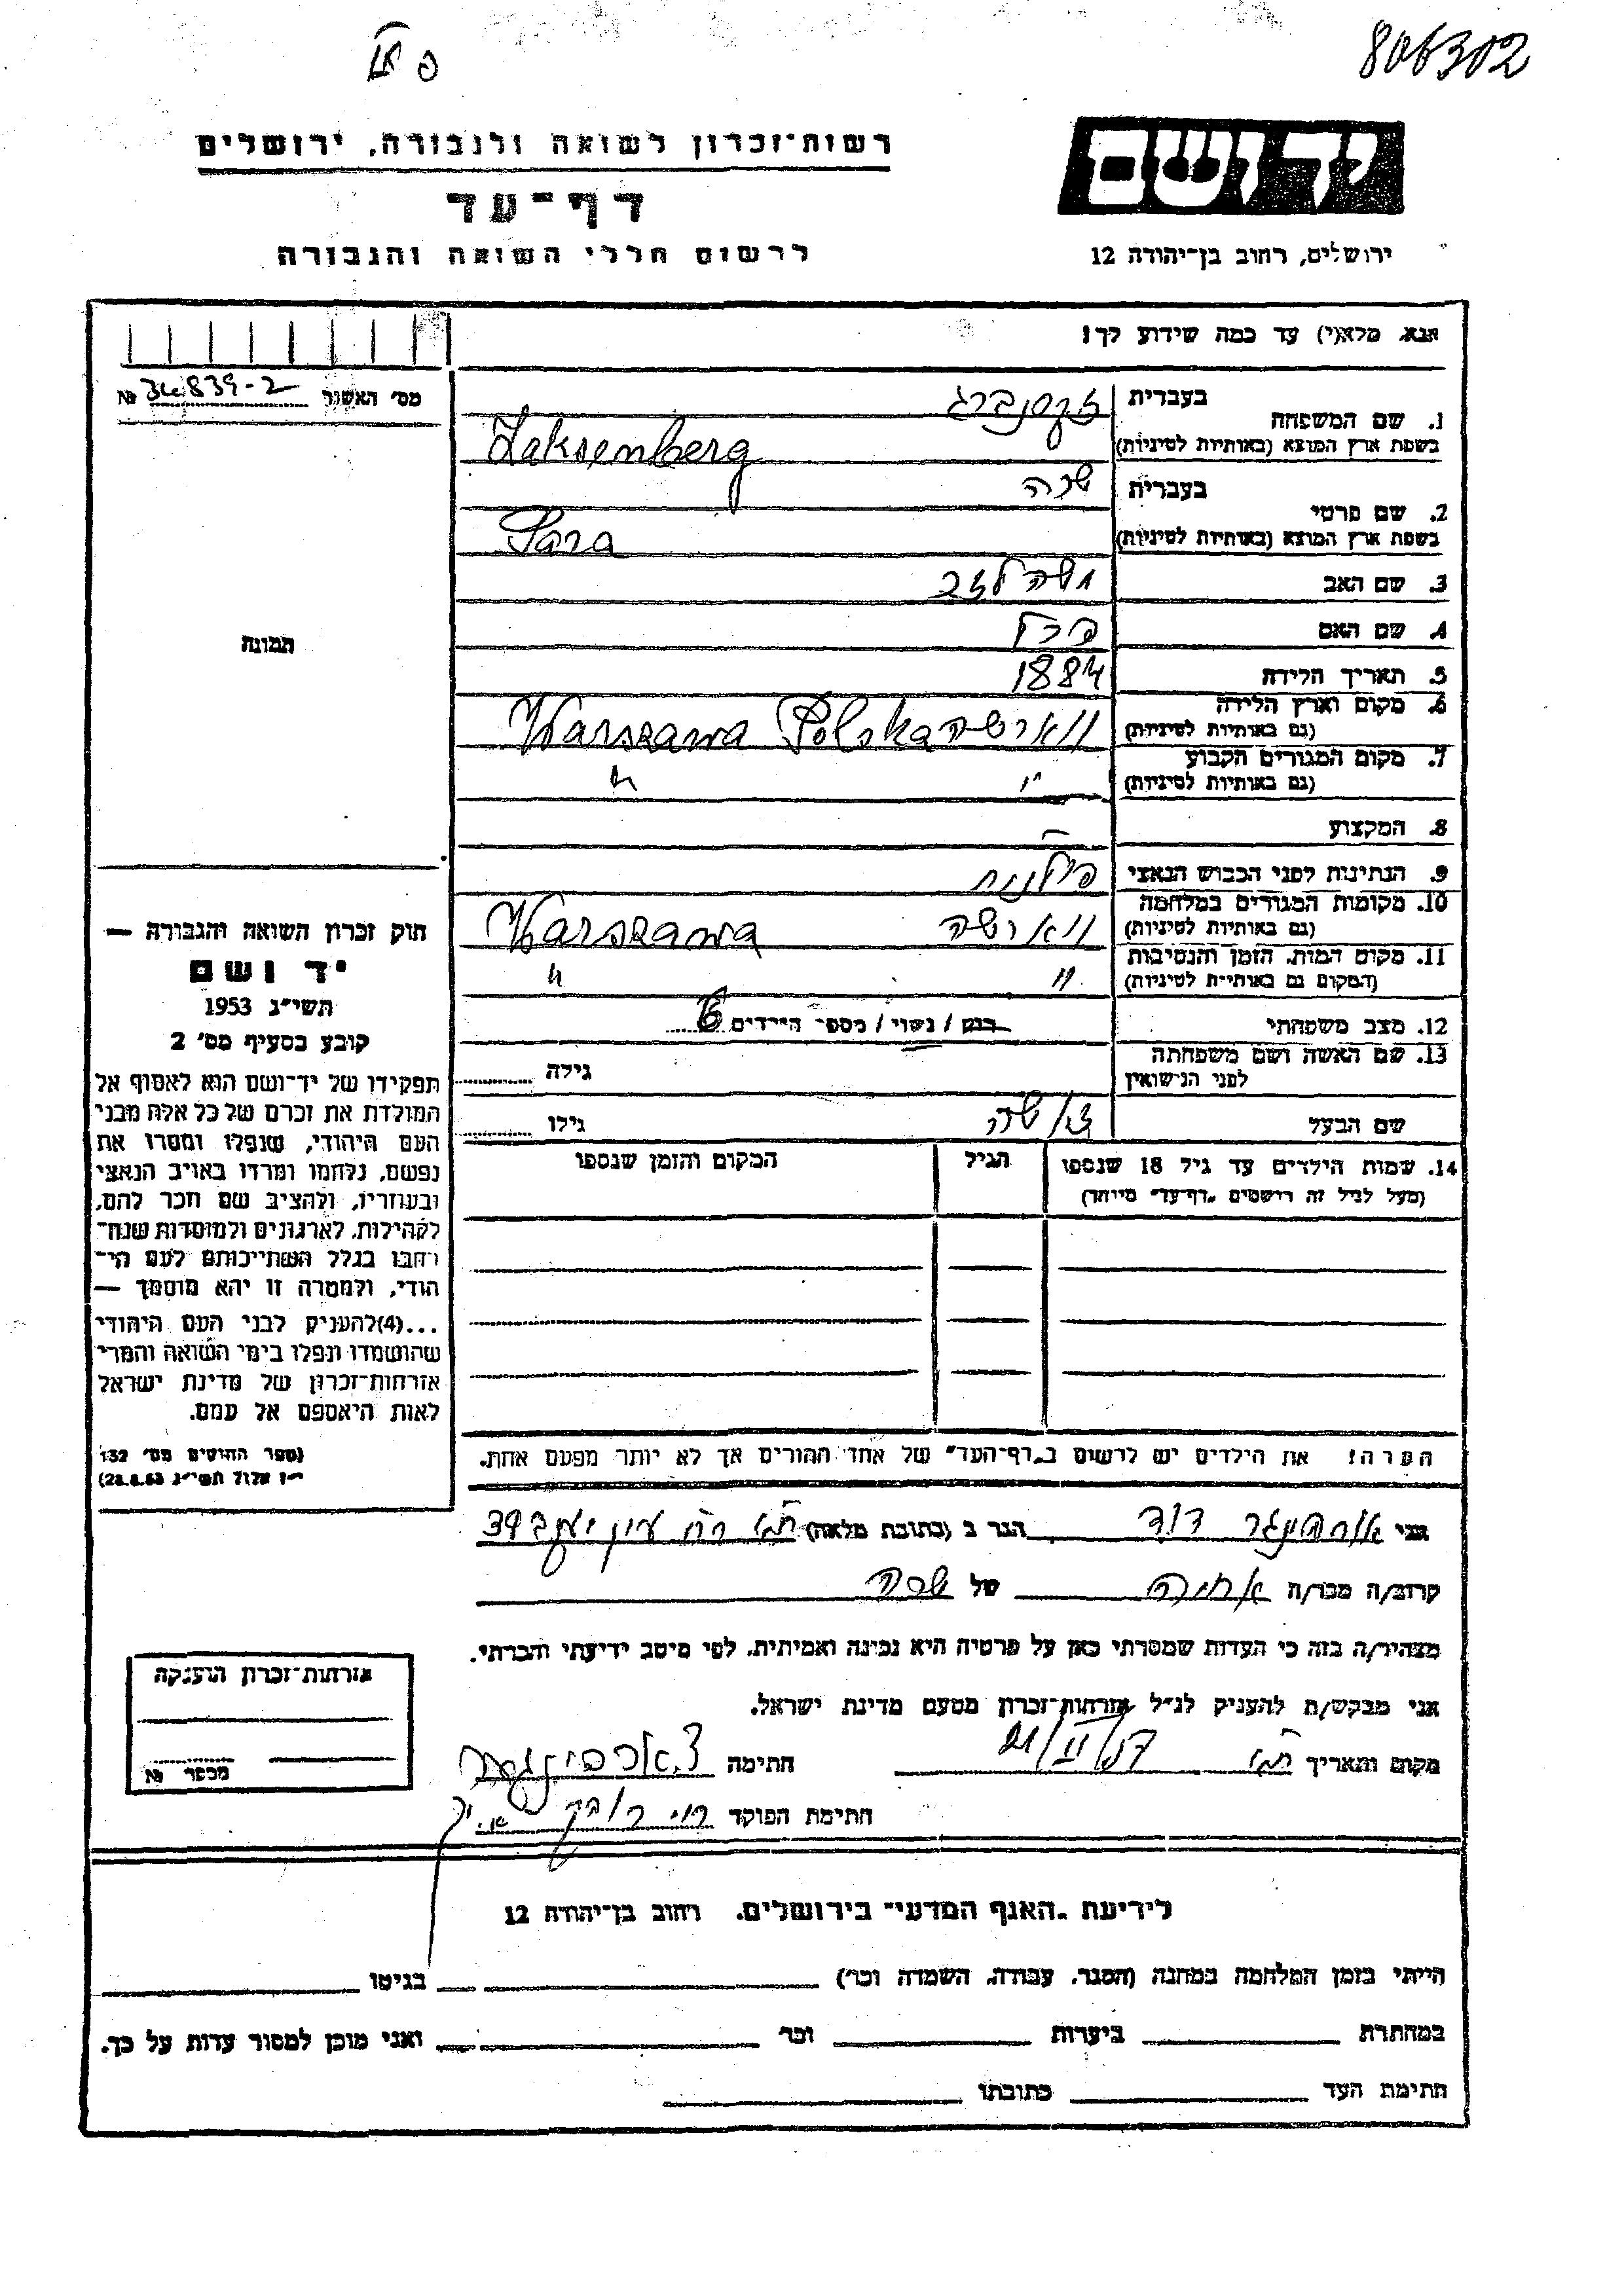 806302
רשות־זכרון לשואה ולגבורה, ירושלים
יד ושם
דף־עד
לרשום חללי השואה והגבורה
ירושלים, רחוב בן־יהודה 12
אנא, מלא(י) עד כמה שידוע לך!
מס׳ האשור № 34839-2
1. שם המשפחה
בעברית זקסנברג
בשפת ארץ המוצא (באותיות לטיניות) Zaksenberg
2. שם פרטי
בעברית שרה
בשפת ארץ המוצא (באותיות לטיניות) Sara
3. שם האב משה
4. שם האם
5. תאריך הלידה 1884
6. מקום וארץ הלידה
(גם באותיות לטיניות) ווארשה Warszawa Polska
7. מקום המגורים הקבוע
(גם באותיות לטיניות) " "
8. המקצוע —
9. הנתינות לפני הכבוש הנאצי פולנית
10. מקומות המגורים במלחמה
(גם באותיות לטיניות) ווארשה Warszawa
11. מקום המות, הזמן והנסיבות
(המקום גם באותיות לטיניות) " "
12. מצב משפחתי רווק / נשוי / מספר הילדים 6
13. שם האשה ושם משפחתה
לפני הנישואין
גילה
שם הבעל
גילו
14. שמות הילדים עד גיל 18 שנספו
(מעל לגיל זה רושמים „דף־עד״ מיוחד)
הגיל
המקום והזמן שנספו
הערה! את הילדים יש לרשום ב„דף־העד״ של אחד ההורים אך לא יותר מפעם אחת.
תמונה
חוק זכרון השואה והגבורה —
יד ושם
תשי״ג 1953
קובע בסעיף מס׳ 2
תפקידו של יד־ושם הוא לאסוף אל
המולדת את זכרם של כל אלה מבני
העם היהודי, שנפלו ומסרו את
נפשם, נלחמו ומרדו באויב הנאצי
ובעוזריו, ולהציב שם וזכר להם,
לקהילות, לארגונים ולמוסדות שנח־
רבו בגלל השתייכותם לעם הי־
הודי, ולמטרה זו יהא מוסמך —
...(4)להעניק לבני העם היהודי
שהושמדו ונפלו בימי השואה והמרי
אזרחות־זכרון של מדינת ישראל
לאות היאספם אל עמם.
(ספר החוקים מס׳ 132
י״ז אלול תשי״ג 28.8.53)
אני דוד הגר ב (כתובת מלאה) ת״א רח׳ עין יעקב 39
קרוב/ה מכר/ה של שרה
מצהיר/ה בזה כי העדות שמסרתי כאן על פרטיה היא נכונה ואמיתית, לפי מיטב ידיעתי והכרתי.
אני מבקש/ת להעניק לנ״ל אזרחות־זכרון מטעם מדינת ישראל.
מקום ותאריך ת״א חתימה
חתימת הפוקד
אזרחות־זכרון הוענקה
מספר №
לידיעת „האגף המדעי״ בירושלים, רחוב בן־יהודה 12
הייתי בזמן המלחמה במחנה (הסגר, עבודה, השמדה וכו׳) בגיטו
במחתרת ביערות וכו׳ ואני מוכן למסור עדות על כך.
חתימת העד כתובתו